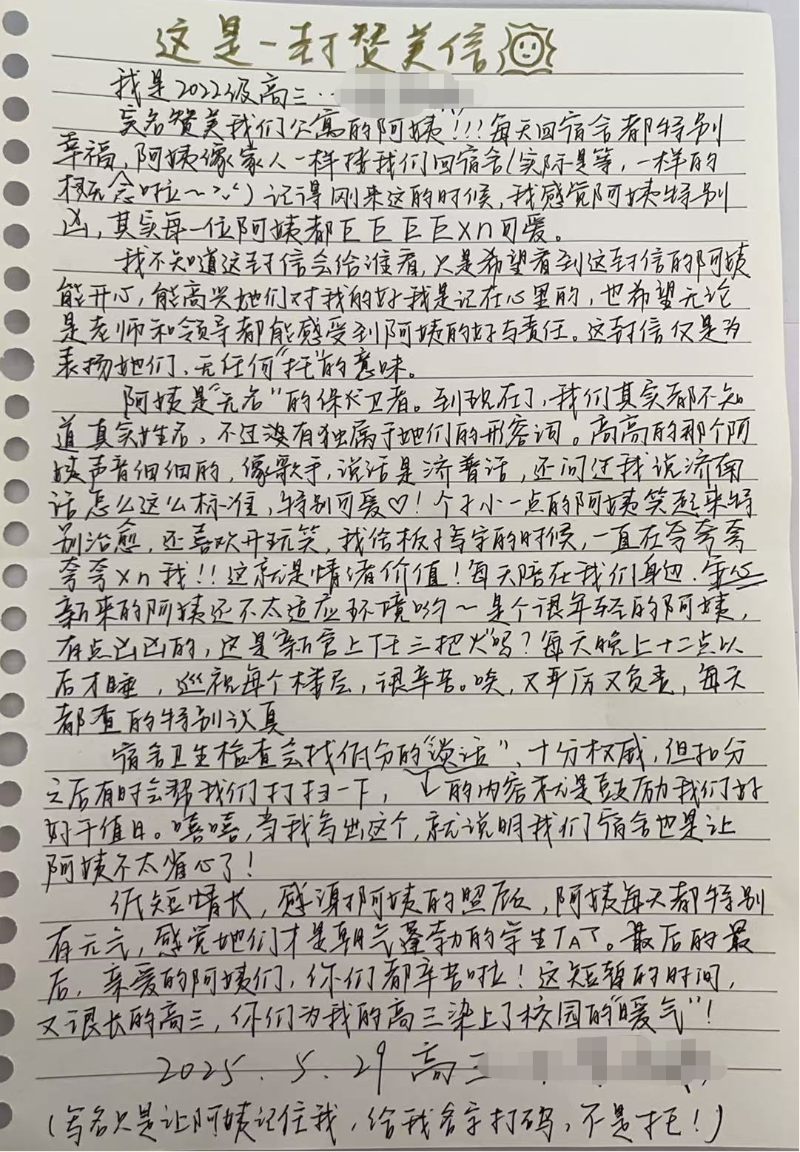 这是一封赞美信
我是2022级高三··
实名赞美我们公寓的阿姨!!!每天回宿舍都特别
幸福,阿姨像家人一样接我们回宿舍(实际是等,一样的
概念啦~)记得刚来这的时候,我感觉阿姨特别
凶,其实每一位阿姨都巨巨巨巨xn可爱。
我不知道这封信会给谁看,只是希望看到这封信的阿姨
能开心,能高兴她们对我的好我是记在心里的,也希望无论
是老师和领导都能感受到阿姨的好与责任。这封信仅是为
表扬她们,无任何"托"的意味。
阿姨是"无名"的保卫者。到现在了,我们其实都不知
道真实姓名,不过没有独属于她们的形容词。高高的那个阿
姨声音细细的,像歌手,说话是济普话,还问过我说济南
话怎么这么标准,特别可爱♡!个子小一点的阿姨笑起来特
别治愈,还喜欢开玩笑,我给板子写字的时候,一直在夸夸夸
夸夸xn我!!这就是情绪价值!每天陪在我们身边.
新来的阿姨还不太适应环境哟~是个很年轻的阿姨,
有点凶凶的,这是"新官上任三把火"吗?每天晚上十二点以
后才睡,巡视每个楼层,很辛苦。唉,又严厉又负责,每天
都查的特别认真
宿舍卫生检查会找低分的"谈话",十分权威,但扣分
之后有时会帮我们打扫一下,的内容就是鼓励我们好
好干值日。嘻嘻,当我写出这个,就说明我们宿舍也是让
阿姨不太省心了!
纸短情长,感谢阿姨的照顾,阿姨每天都特别
有元气,感觉她们才是朝气蓬勃的学生TAT。最后的最
后,亲爱的阿姨们,你们都辛苦啦!这短暂的时间,
又很长的高三,你们为我的高三染上了校园的"暖气"!
2025.5.29 高三
(写名只是让阿姨记住我,给我名字打码,不是托!)